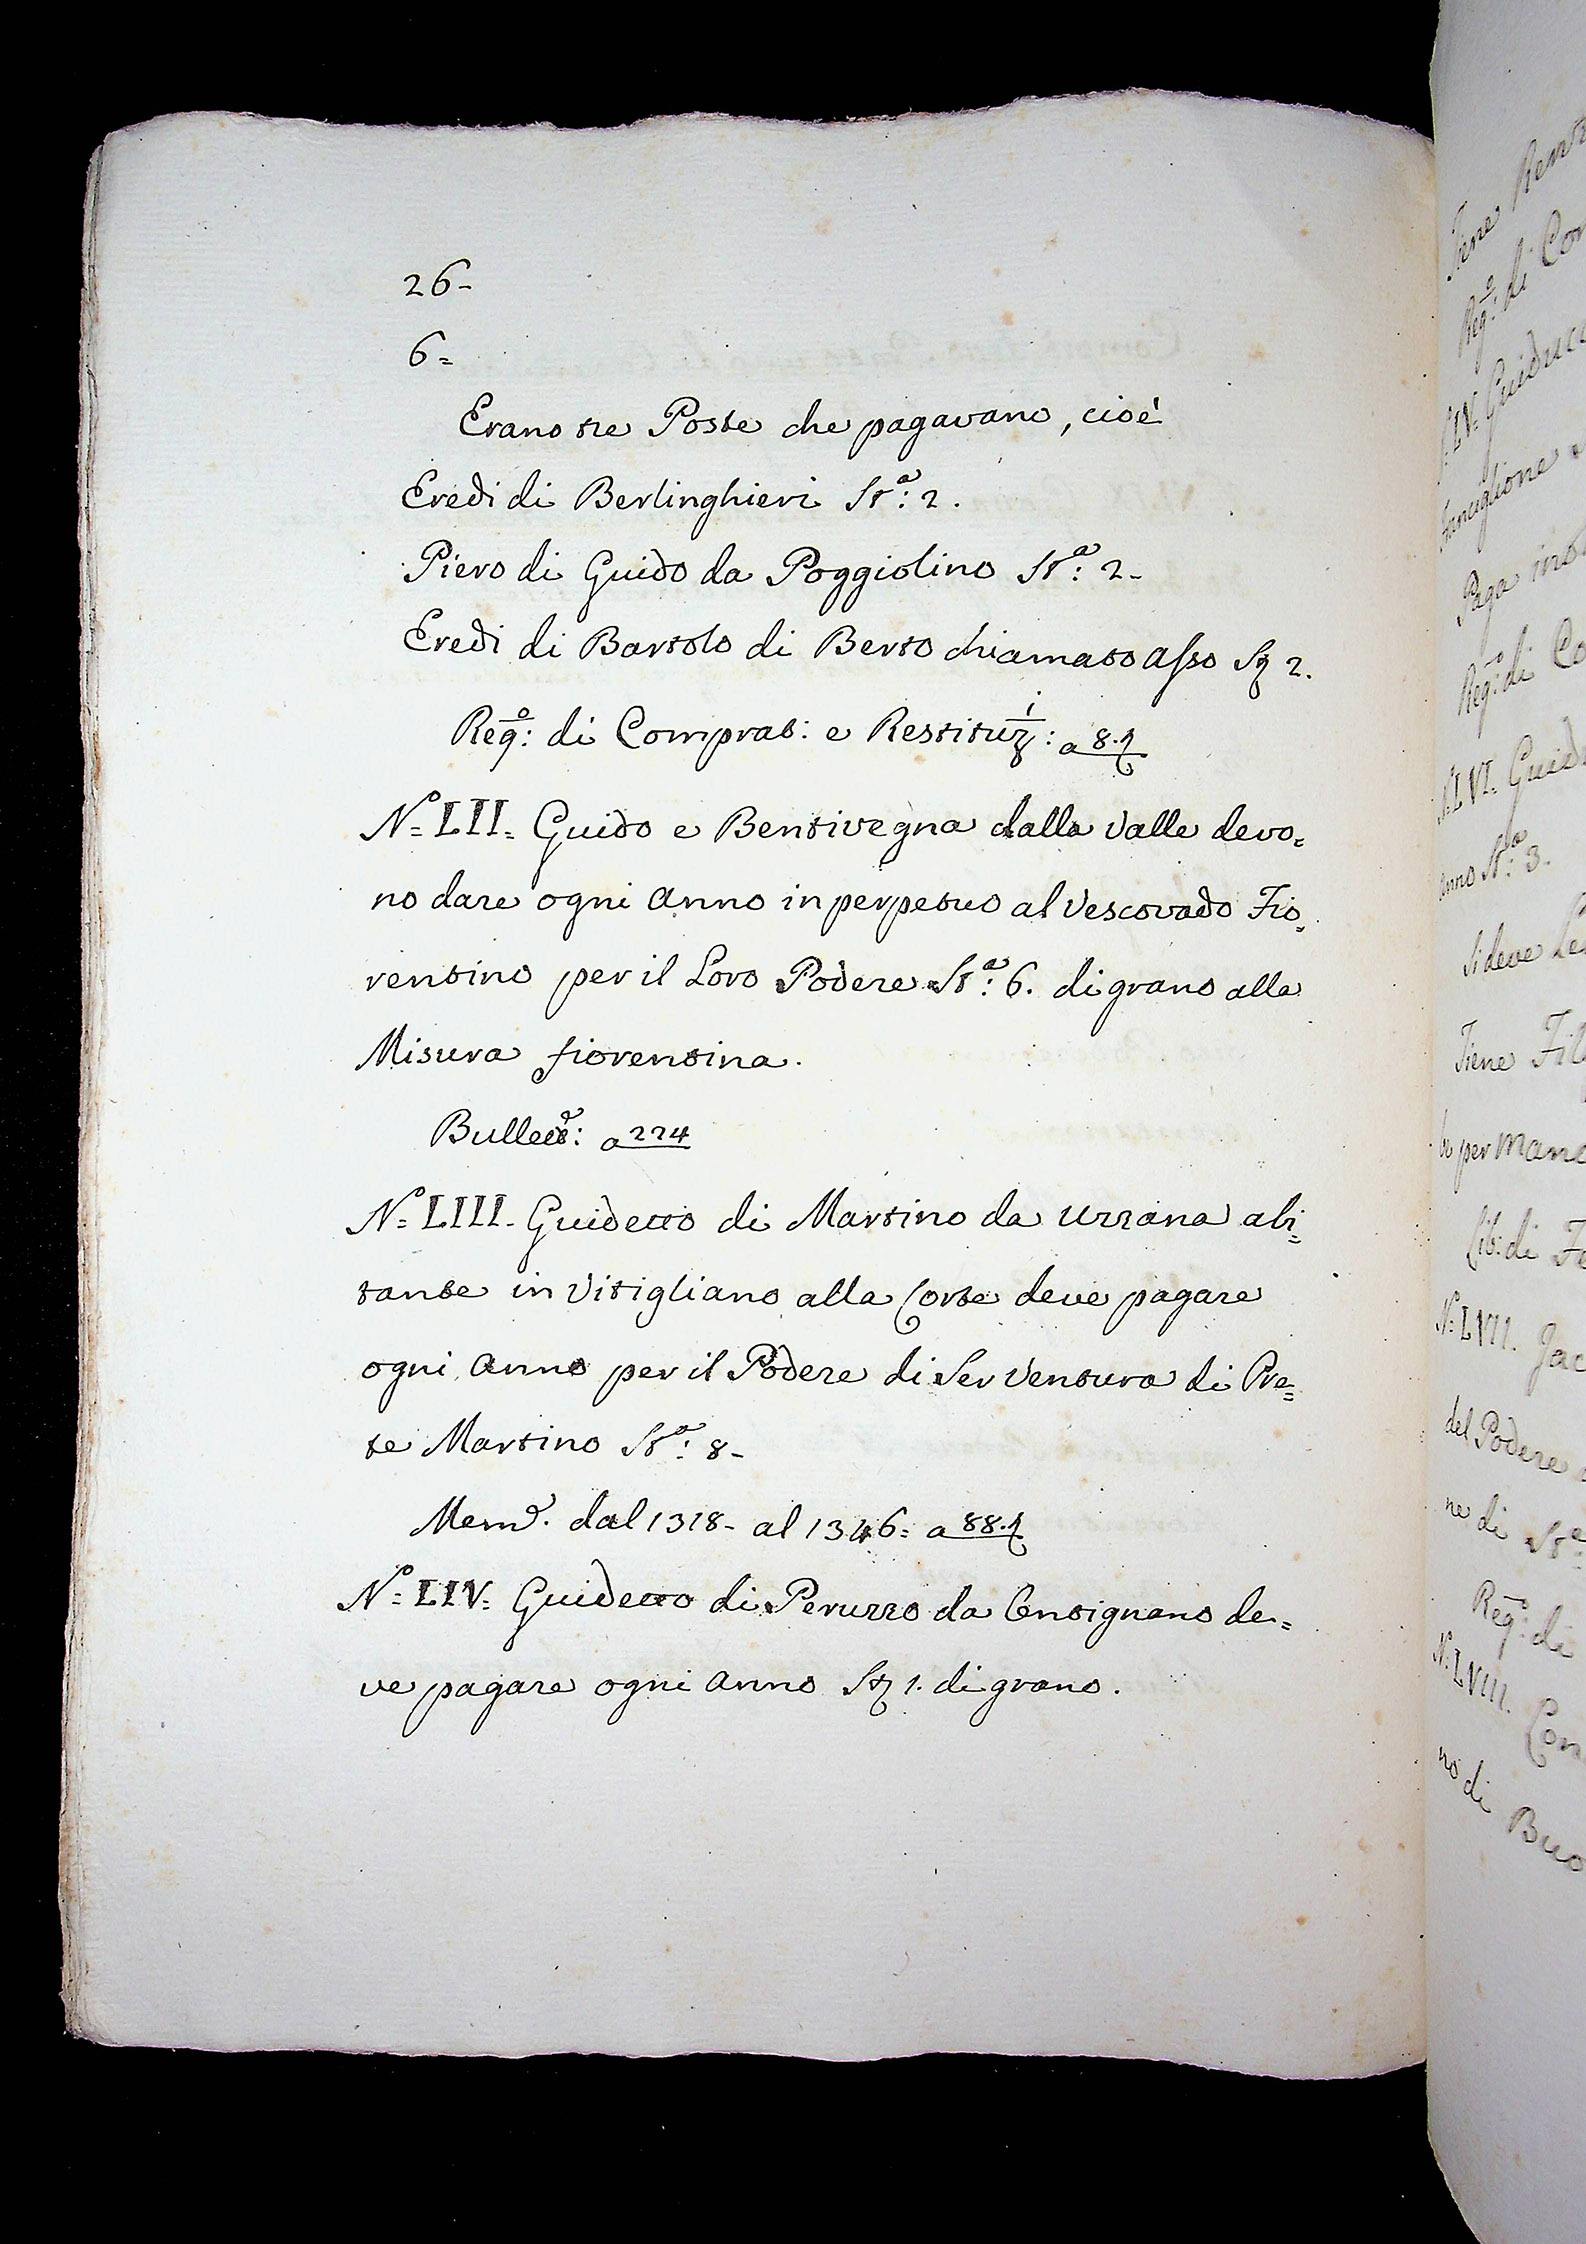 26-
6=
Erano tre Poste che pagavano, cioè
Eredi di Berlinghieri St.ª: 2.
Piero di Guido da Poggiolino St.ª: 2-
Eredi di Bartolo di Berto chiamato Asso St 2.
Reg.º: di Comprat: e Restituz.i: a 8.t
Nº= LII= Guido e Bentivegna dalla Valle devo=
no dare ogni Anno in perpetuo al Vescovado Fio=
rentino per il Loro Podere St.ª: 6. di grano alla
Misura fiorentina.
Bullett: a 224
Nº= LIII- Guidetto di Martino da Uzzana abi=
tante in Vitigliano alla Corte deve pagare
ogni Anno per il Podere di Ser Ventura di Pre=
te Martino St.ª: 8-
Mem. dal 1318- al 1346= a 88.t
Nº= LIV= Guidetto di Peruzzo da Centignano de=
ve pagare ogni Anno St 1. di grano.
Tiene
Reg.º: di
LV=
Paga
Reg.º: di
Nº LVI=
Anno St.ª: 3.
Si deve
Tiene
per
Lib: di
Nº= LVII.
del Podere
ne di St.ª
Reg.º: di
Nº LVIII.
no di